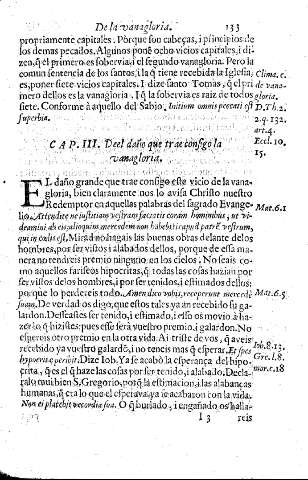 De la vanagloria. 133
propriamente capitales. Porque son cubeças, i principios de
los demas pecados. Algunos ponẽ ocho vicios capitales, i di-
zen, q̃ el primero es sobervia, i el segundo vanagloria. Pero la
comun sentencia de los santos, i la q̃ tiene recebida la Iglesia, Clima. c.
es, poner siete vicios capitales. I dize santo Tomas, q̃ el pri- de vana-
mero dellos es la vanagloria. I q̃ la sobervia es raiz de todos gloria.
siete. Conforme à aquello del Sabio. Initium omnis peccati est D. Th. 2.
superbia. 2. q. 132.
art. 4.
Eccl. 10.
15.
CAP. III. Deel daño que trae consigo la
vanagloria.
EL daño grande que trae consigo este vicio de la vana-
gloria, bien encarecidamente nos lo avisa Christo nuestro
Redemptor en aquellas palabras del sagrado Evange- Mat. 6. 1
lio. Attendite ne iustitiam vestram faciatis coram hominibus, ut vi-
deamini ab eis, alioquin mercedem non habebitis apud patrẽ vestrum,
qui in cœlis est. Mirad no hagais las buenas obras delante delos
hombres, por ser vistos i alabados dellos, porque de essa ma-
nera no tendreis premio ninguno en los cielos. No seais co-
mo aquellos fariseos hipocritas, q̃ todas las cosas hazian por
ser vistos delos hombres, i por ser tenidos, i estimados dellos:
porque lo perdereis todo. Amen dico vobis, receperunt mercedẽ Mat. 6. 5
suam. De verdad os digo, que estos tales ya an recebido su ga-
lardon. Desseastes ser tenido, i estimado, i esso os moviò à ha-
zer lo q̃ hizistes: pues esse serà vuestro premio, i galardon. No
espereis otro premio en la otra vida. Ai triste de vos, q̃ aveis
recebido ya vuestro galardõ, i no teneis mas q̃ esperar. Et spes Iob. 8. 13.
hypocritæ peribit. Dize Iob. Ya se acabò la esperança del hipo- Gre. l. 8.
crita, q̃ es el q̃ haze las cosas por ser tenido, i alabado. Decla- mor. c. 18
ralo mui bien S. Gregorio, porq̃ la estimacion, i las alabanças
humanas, q̃ era lo que el esperava, ya se acabaron con la vida.
Non ei placebit vecordia sua. O q̃ burlado, i engañado os halla-
I 3 reis